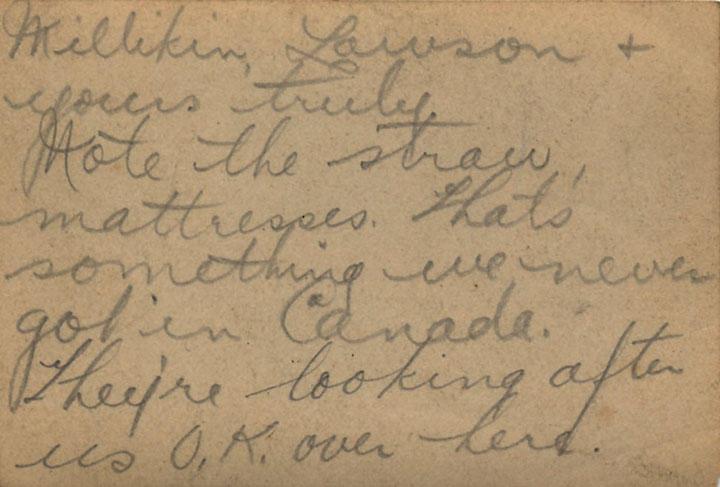 Millikin, Lawson +
yours truly.
Note the straw,
mattresses. Thats
something we never
got in Canada.
They're looking after
us O.K. over here.